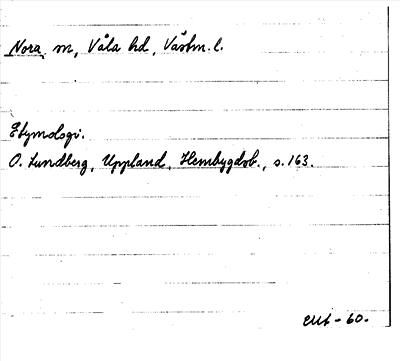 Nora sn, Våla hd, Västm. l.
Etymologi.
O. Lundberg, Uppland, Hembygdsb., s. 163.
-60.